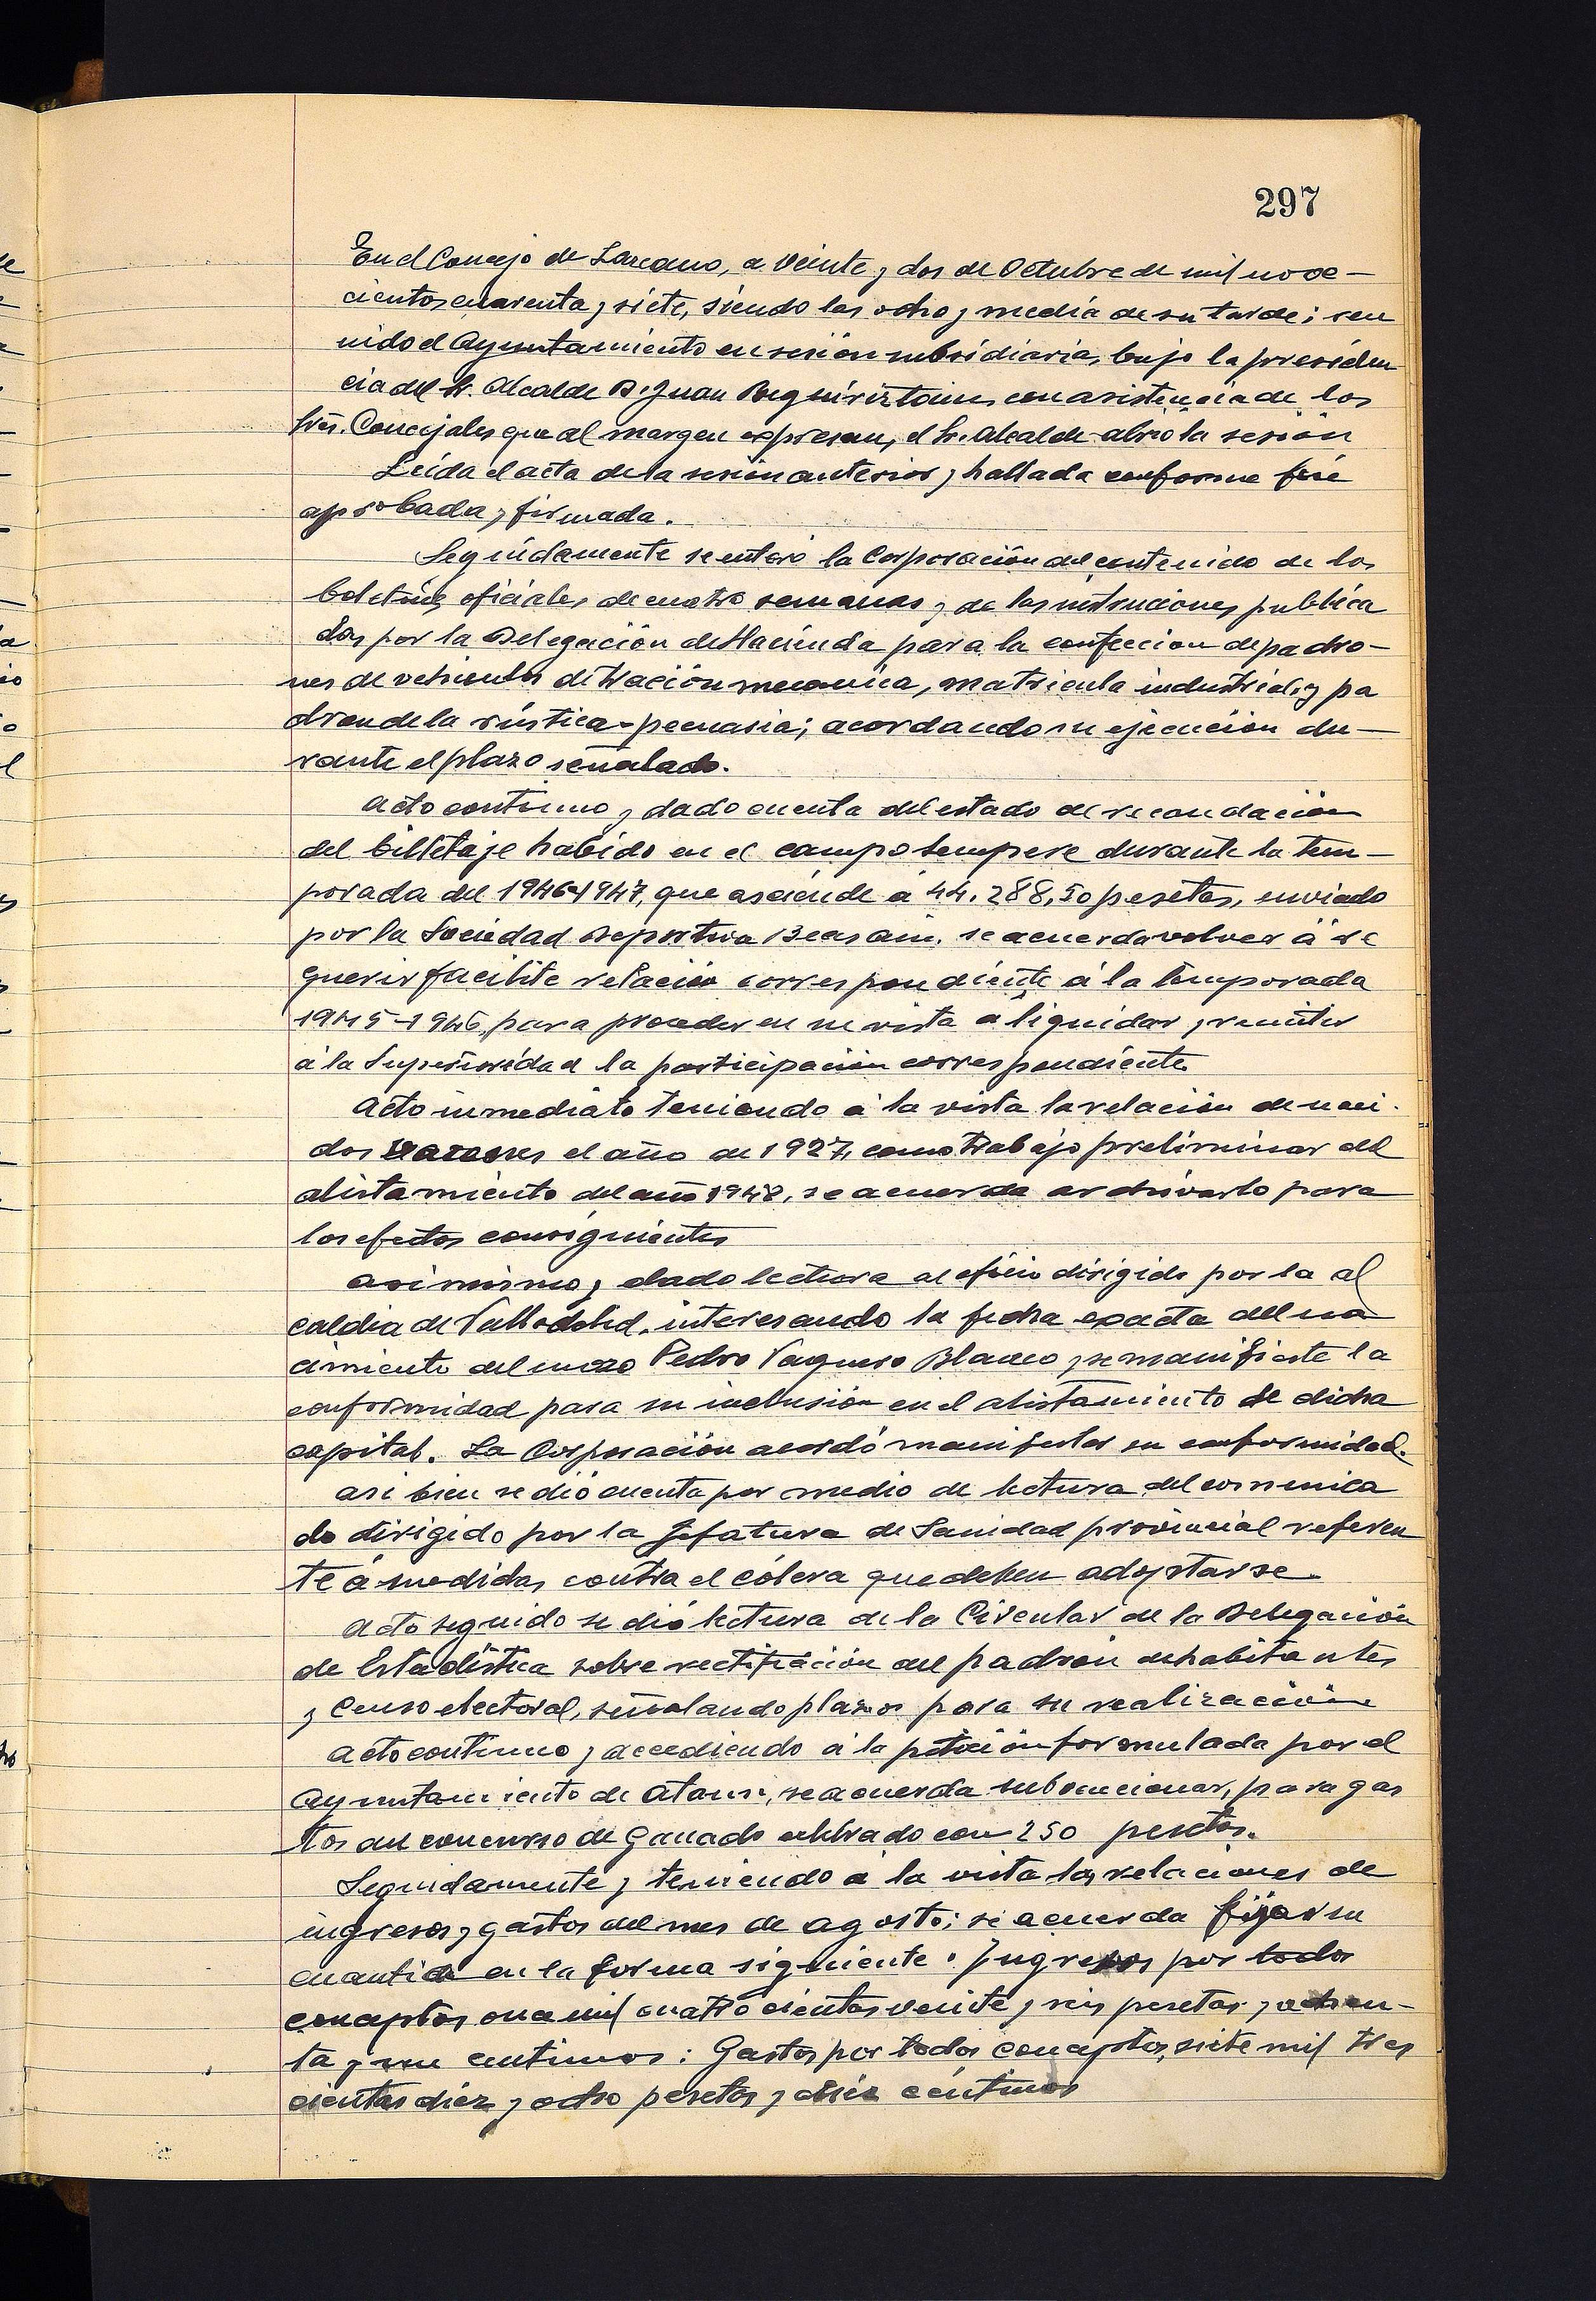 297
En el Concejo de Lazcano, a veinte y dos de Octubre de mil nove-
cientos cuarenta y siete, siendo las ocho y media de su tarde; reu
nido el Ayuntamiento en sesión subsidiaria, bajo la presiden
cia del Sr. Alcalde D. Juan con asistencia de los
Sres. Concejales que al margen expresan, el Sr. Alcalde abrio la sesión
Leída el acta de la sesión anterior y hallada conforme fué
aprobada y firmada.
Seguidamente se enteró la Corporación del contenido de los
boletines oficiales de cuatro semanas y de las instruciones publica
das por la Delegación de Hacienda para la confeccion de padro-
nes de vehiculos de tración mecanica, matricula industrial, y pa
dron de la rústica-pecuaria; acordando su ejecución du-
rante el plazo señalado.
Acto continuo y dado cuenta del estado de recaudación
del billetaje habido en el campo durante la tem-
porada del 1946-1947, que asciende á 44.288,50 pesetas, enviado
por la Sociedad Deportiva Beasain, se acuerda volver á re
querir facilite relación correspondiente á la temporada
1945-1946, para proceder en su vista a liquidar y remitir
á la Superioridad la participación correspondiente.
Acto inmediato teniendo á la vista la relación de naci-
dos varones el año de 1927, como trabajo preliminar del
alistamiento del año 1948, se acuerda archivarlo para
los efectos consiguientes
Asimismo y dado lectura al oficio dirigido por la al
caldia de Valladolid, interesando la fecha exacta del na
cimiento del mozo Pedro Vaquero Blanco y se manifieste la
conformidad para su inclusión en el alistamiento de dicha
capital. La Corporación acordó manifestar su conformidad.
Asi bien se dió cuenta por medio de lectura del comunica
do dirigido por la Jefatura de Sanidad provincial referen
te á medidas contra el cólera que deben adoptarse.
Acto seguido se dió lectura de la Circular de la Delegación
de Estadística sobre rectificación del padrón de habitantes
y Censo electoral, señalando plazos para su realización
Acto continuo y accediendo á la petición formulada por el
Ayuntamiento de Ataun, se acuerda subvencionar, para gas
tos del concurso de Ganado celebrado con 250 pesetas.
Seguidamente y teniendo á la vista las relaciones de
ingresos y gastos del mes de agosto; se acuerda fijar su
cuantia en la forma siguiente: Ingresos por todos
conceptos once mil cuatrocientas veinte y seis pesetas y ochen-
ta y un centimos: Gastos por todos conceptos, siete mil tres
cientas diez y ocho pesetas y diez céntimos